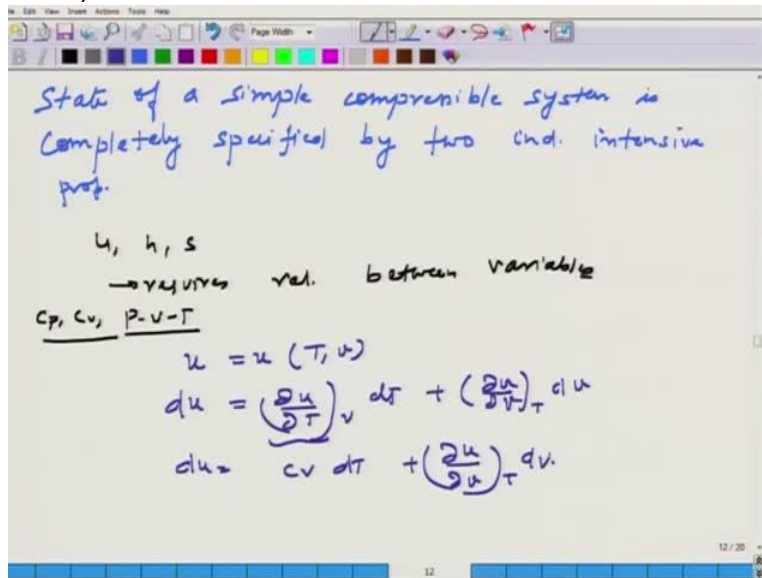 Edit View Insert Actions Tools Help
Page Width
State of a simple compressible system is
completely specified by two ind. intensive
prop.
u, h, s
→ requires rel. between variable
Cp, Cv, P-v-T
u = u (T, v)
du = (∂u/∂T)_v dT + (∂u/∂v)_T dv
du = cv dT + (∂u/∂v)_T dv.
12 / 20
12